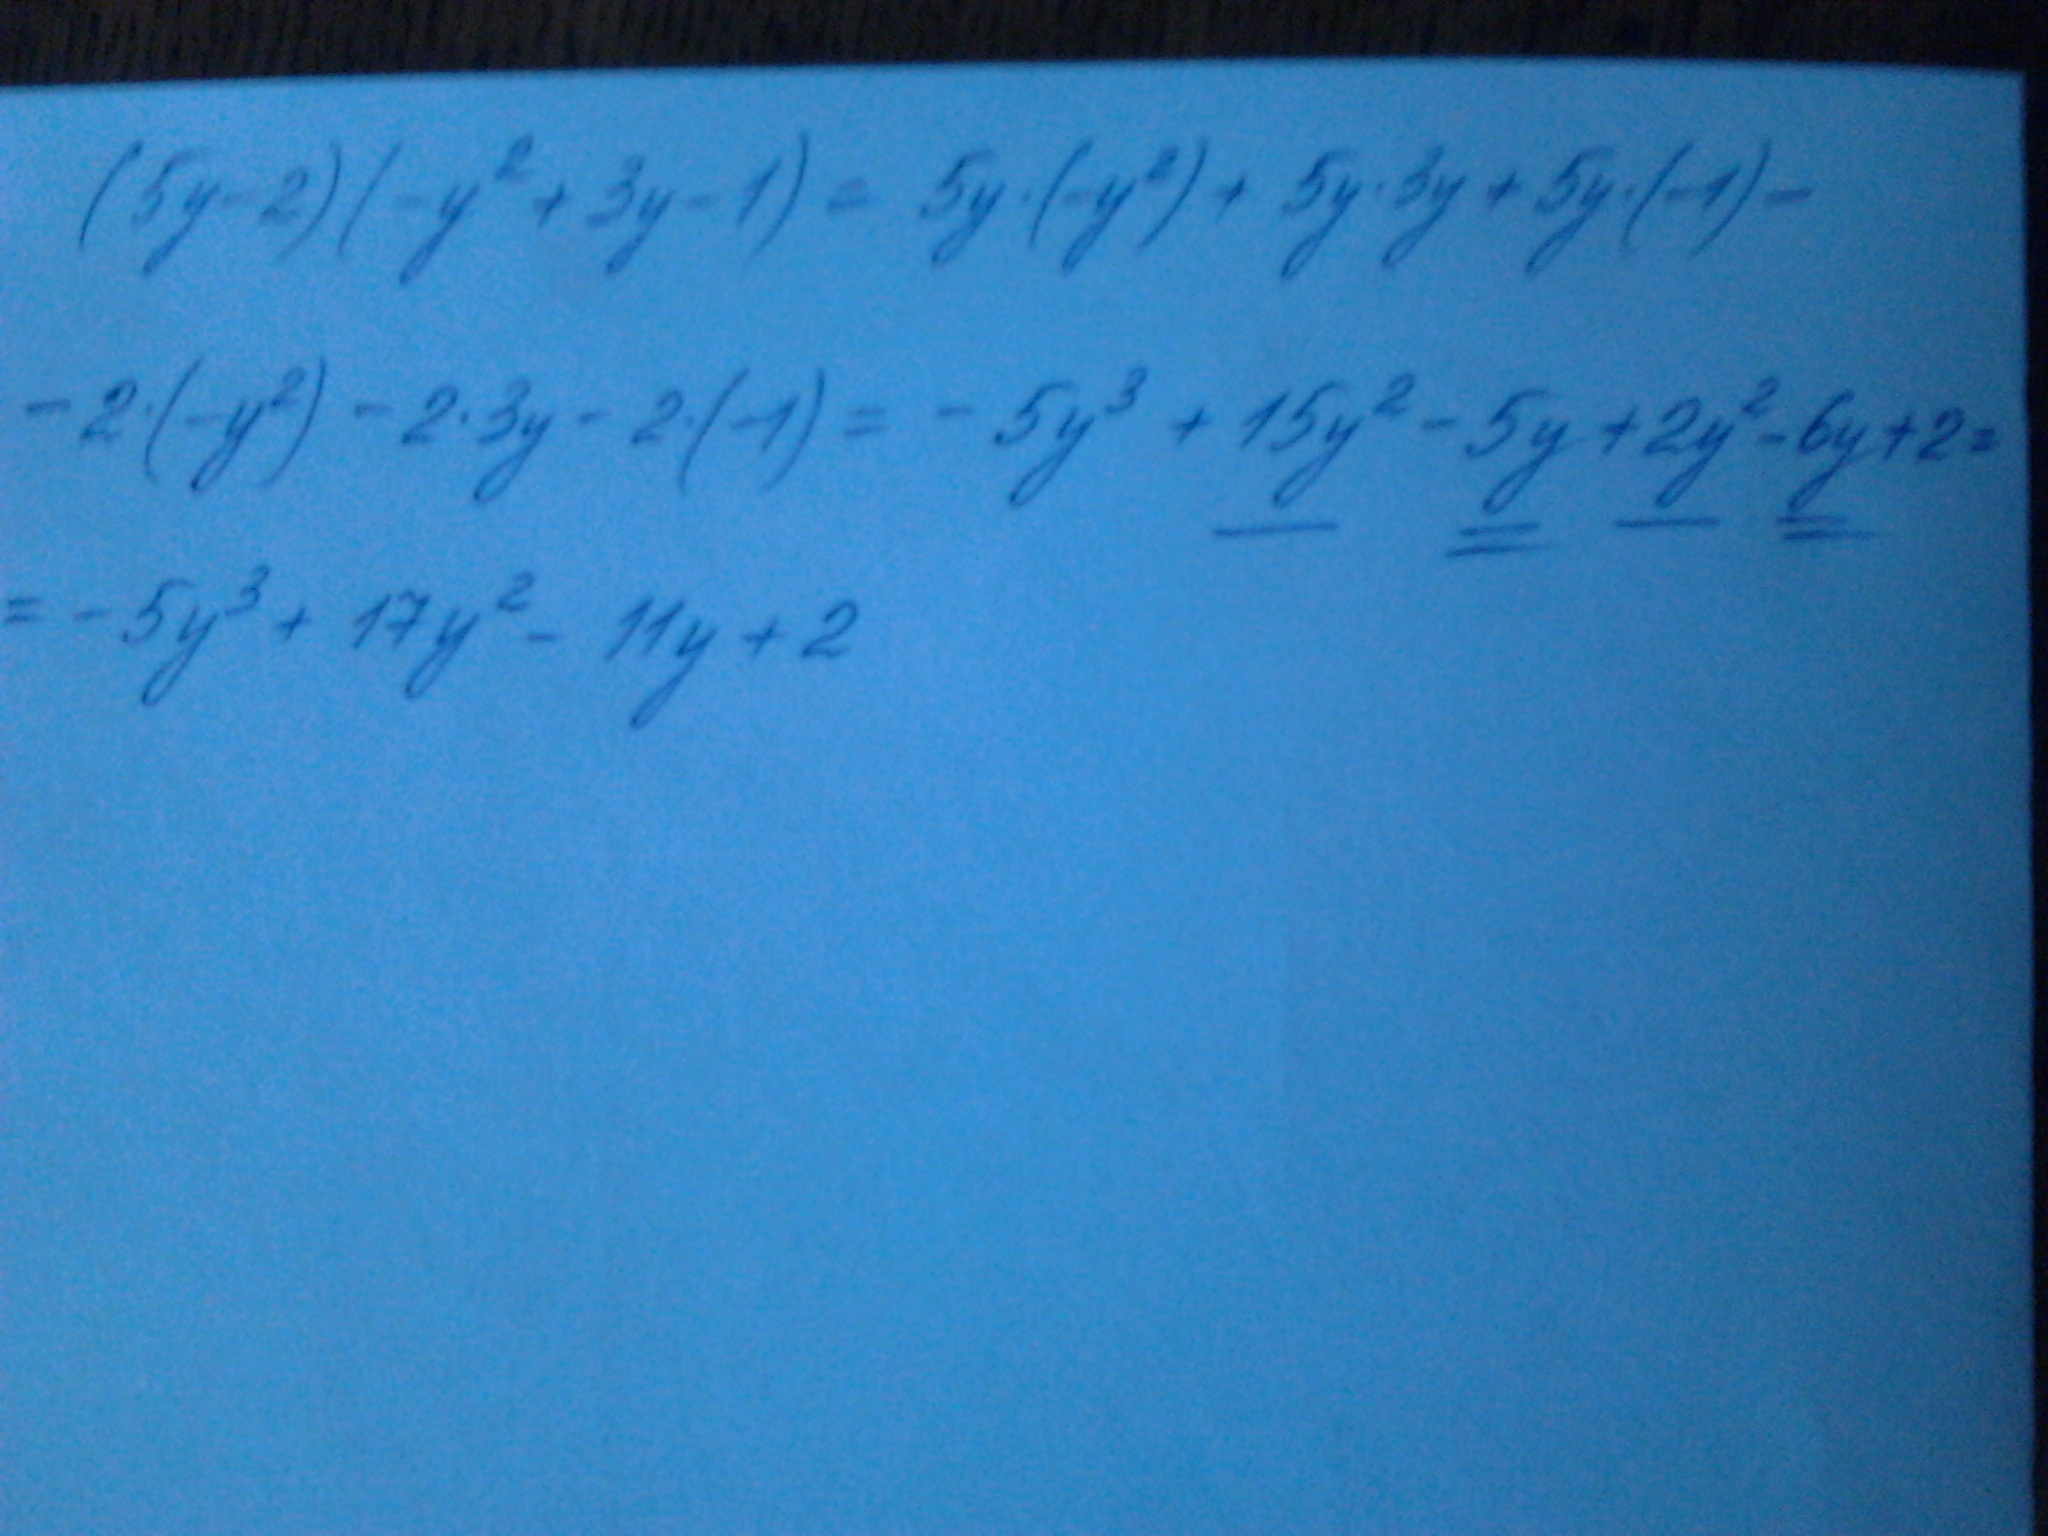 (5y-2)(-y²+3y-1) = 5y·(-y²)+5y·3y+5y·(-1)-
-2·(-y²)-2·3y-2·(-1) = -5y³+15y²-5y+2y²-6y+2=
= -5y³+17y²-11y+2